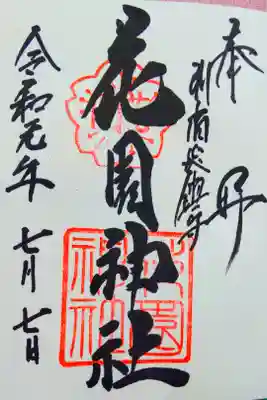 奉拝
新宿総鎮守
花園神社
令和元年 七月七日
花園神社